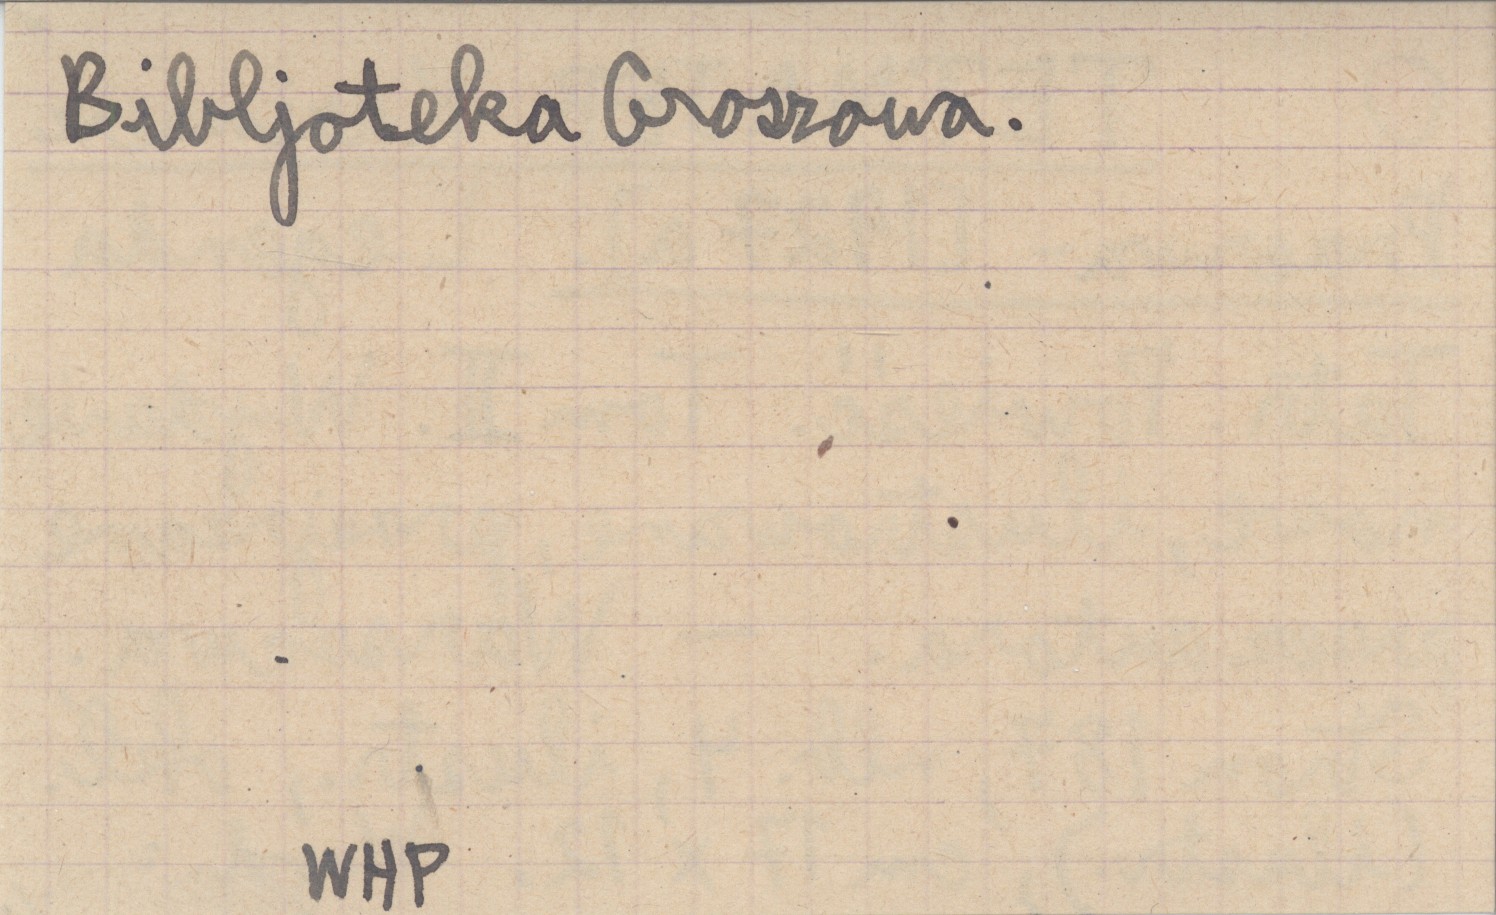 Bibljoteka Groszowa.
WHP